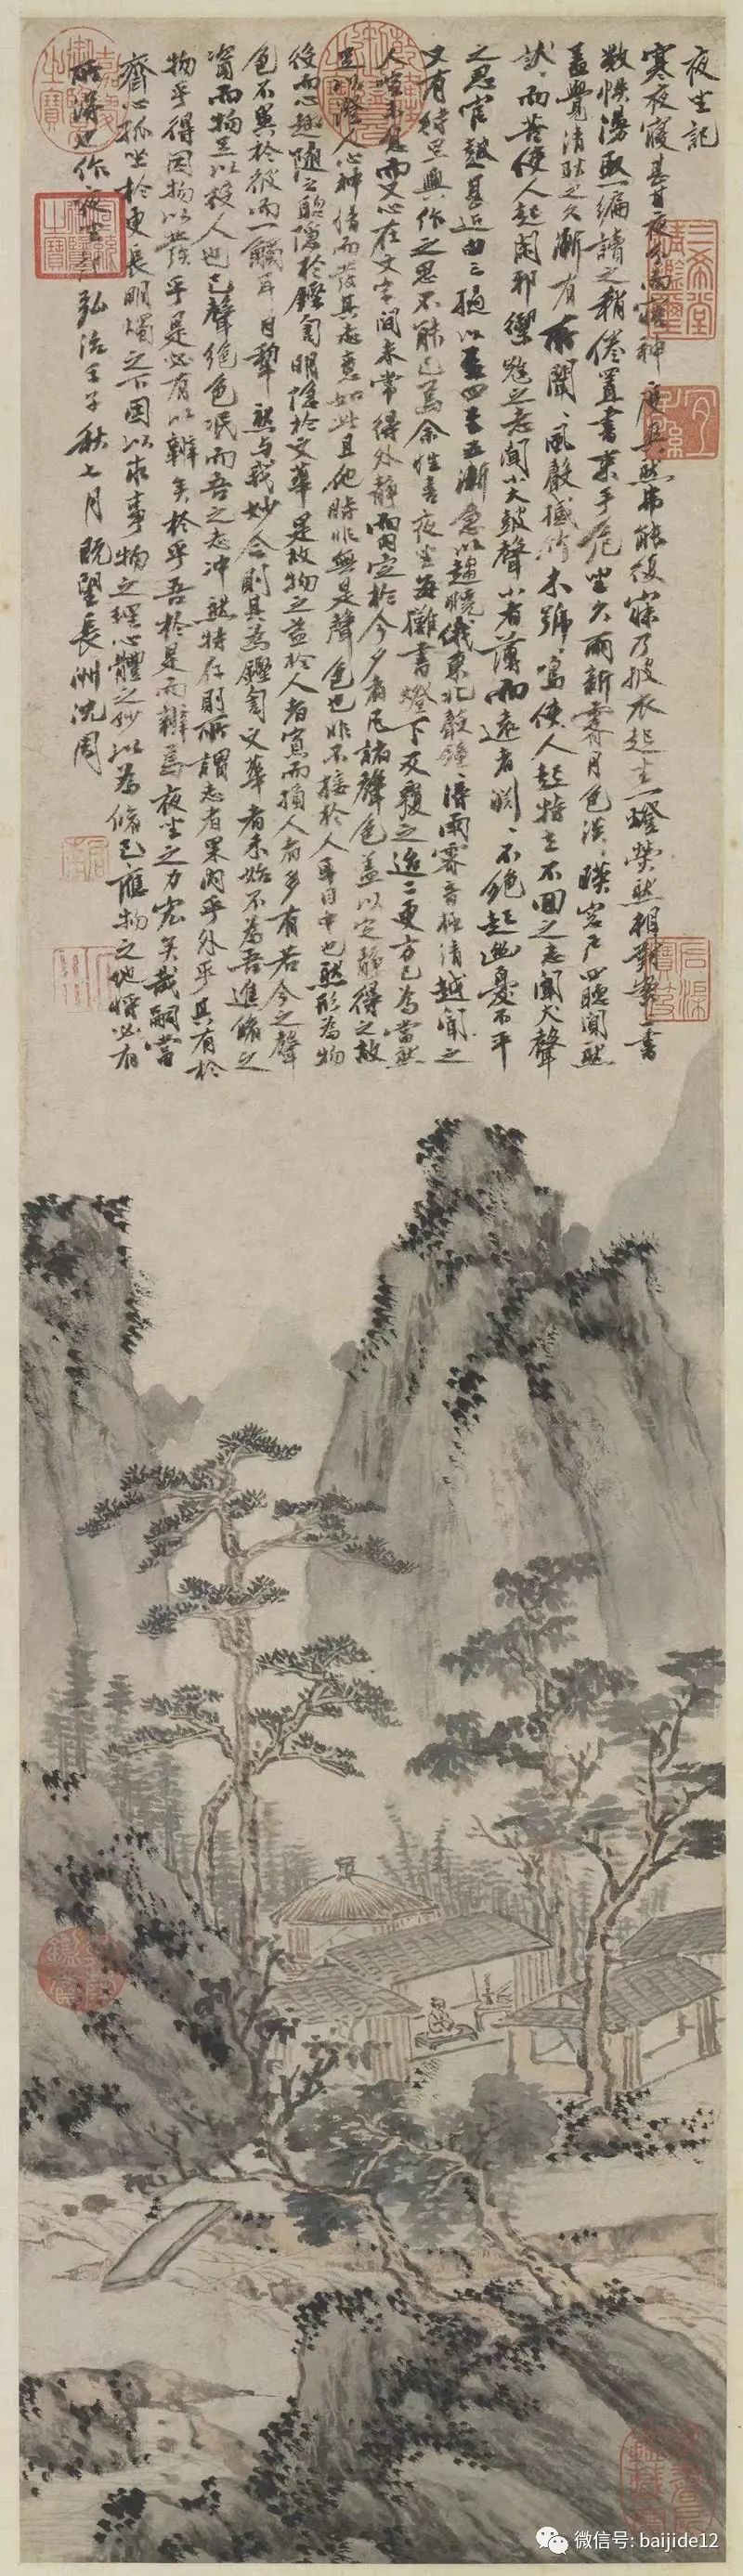 夜坐記
寒夜寢甚甘夜分而寤神度爽然弗能復寐乃披衣起坐一燈熒然相對案上書
數帙漫取一編讀之稍倦置書束手危坐久雨新霽月色淡淡映窗戶四聽闃然
蓋覺清耿之久漸有所聞聞風聲撼竹木號號鳴使人起特立不回之志聞犬聲
狺狺而苦使人起閑邪禦寇之志聞小大鼓聲小者薄而遠者淵淵不絕起幽憂不平
之思官鼓甚近由三撾以至四至五漸急以趨曉俄東北聲鐘鐘得雨霽音極清越聞之
又有待旦興作之思不能已焉余性喜夜坐每攤書燈下反覆之迨二更方已為當然
人喧未息而又心在文字間未常得外靜而內定於今夕者凡諸聲色蓋以定靜得之故
足以澄人心神情而發其志意如此且他時非無是聲色也非不接於人耳目中也然形為物
役而心趣隨之聰隱於鏗訇明隱於文華是故物之益於人者寡而損人者多有若今之聲
色不異於彼而一觸耳目犁然與我妙合則其為鏗訇文華者未始不為吾進修之
資而物足以役人也已聲絕色泯而吾之志沖然特存則所謂志者果內乎外乎其有於
物乎得因物以發乎是必有以辨矣於乎吾於是而辨焉夜坐之力宏矣哉嗣當
齋心孤坐於更長明燭之下因以求事物之理心體之妙以為修己應物之地將必有
所得也作夜坐記弘治壬子秋七月既望長洲沈周
三希堂精鑑璽
宜子孫
石渠寶笈
乾隆御覽之寶
嘉慶御覽之寶
宣統御覽之寶
啟南
乾隆鑑賞
微信号: baijide12